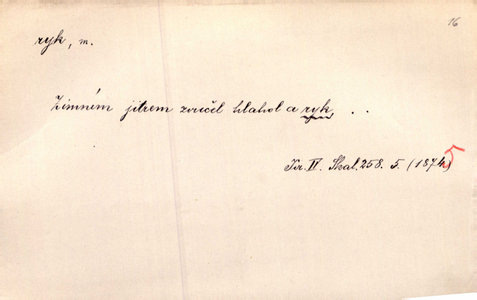 16
ryk, m.
Zimném jitrem zvučel hlahol a ryk . .
Jir. IV. Skal. 258. 5. (1875)